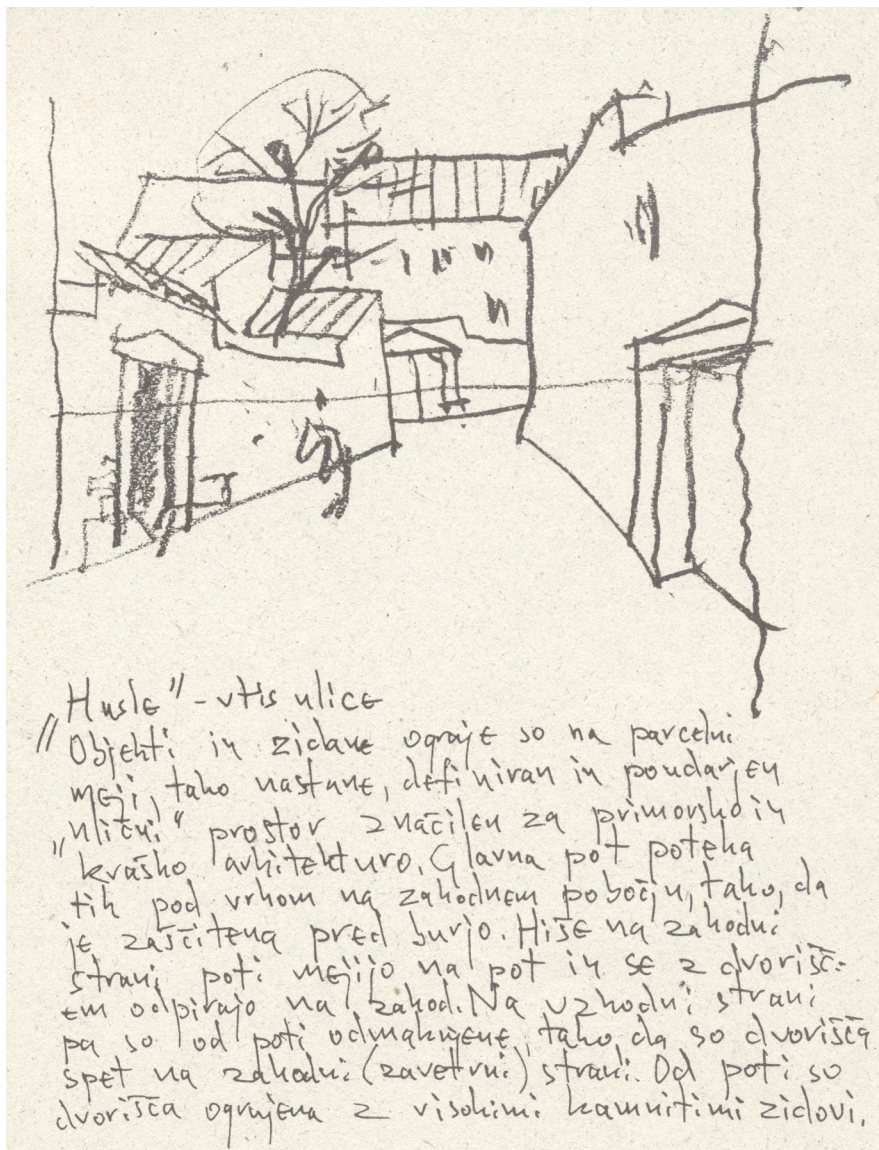 „Husle” - vtis ulice
Objekti in zidane ograje so na parcelni
meji, tako nastane, definiran in poudarjen
„ulični“ prostor značilen za primorsko in
kraško arhitekturo. Glavna pot poteka
tik pod vrhom na zahodnem pobočju, tako, da
je zaščitena pred burjo. Hiše na zahodni
strani poti mejijo na pot in se z dvorišč-
em odpirajo na zahod. Na vzhodni strani
pa so od poti odmaknjene, tako, da so dvorišča
spet na zahodni (zavetrni) strani. Od poti so
dvorišča ograjena z visokimi kamnitimi zidovi.